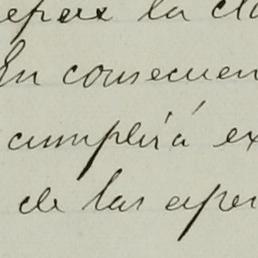 la cla
En consecuen
cumplirá ex
de las aper